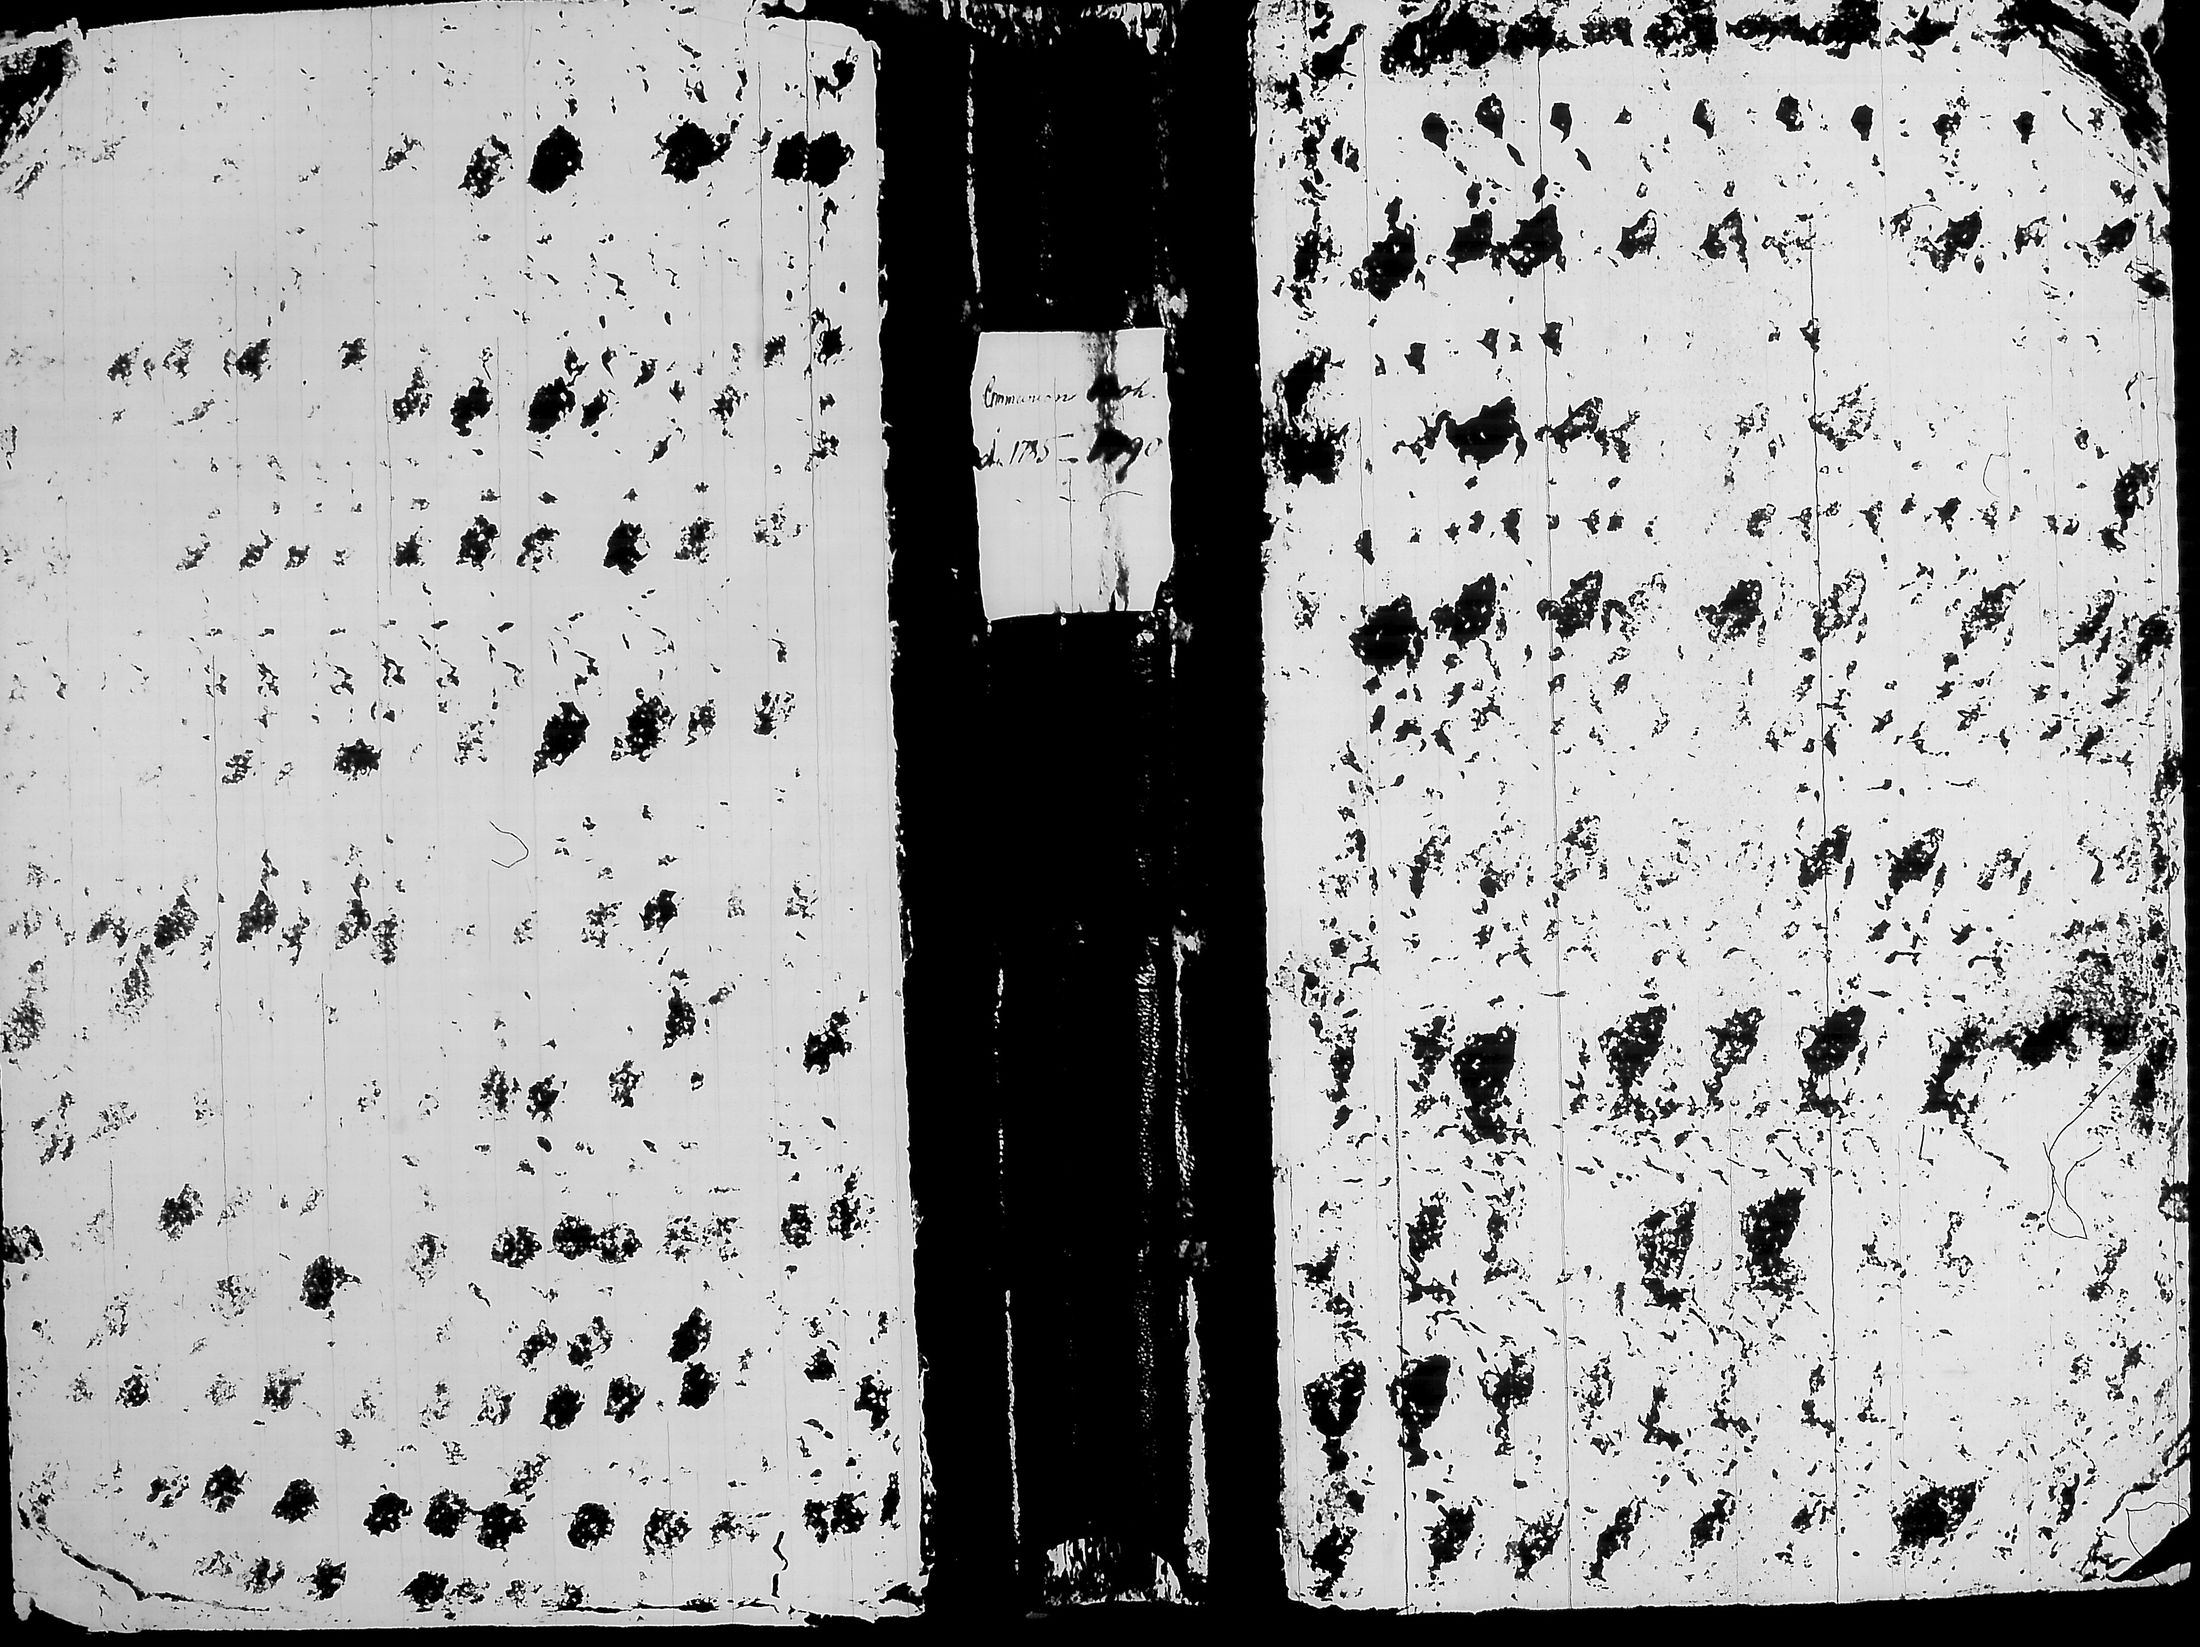 Communion Book.
de 1785 – 1790